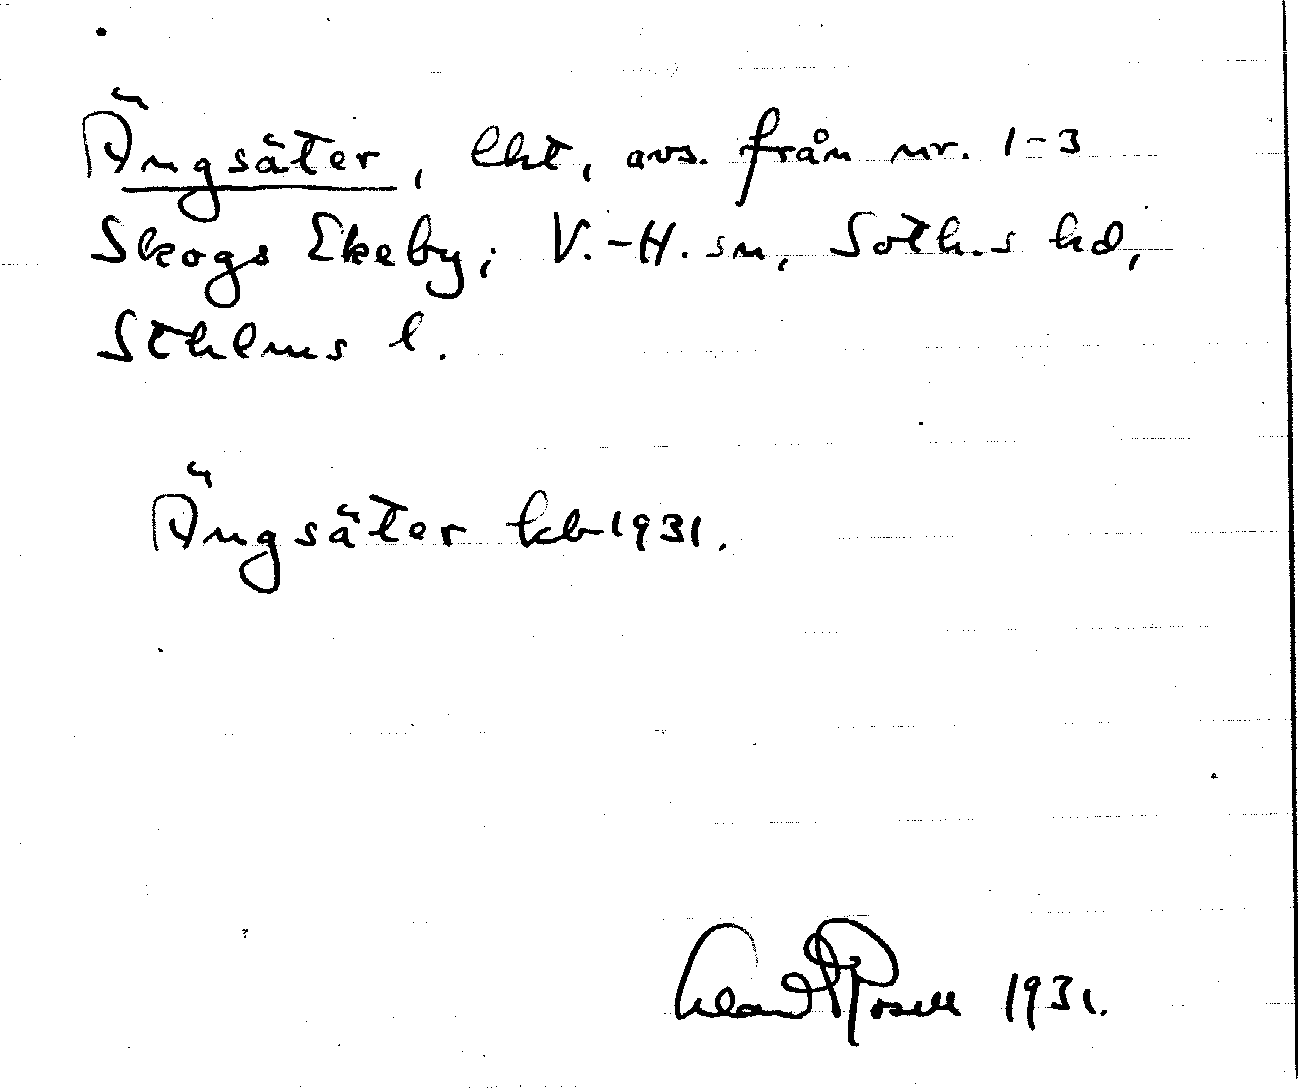 Ängsäter, lht, avs. från nr. 1-3
Skogs Ekeby, V.-H. sn, Soth.s hd,
Sthlms l.
Ängsäter kb 1931.
1931.